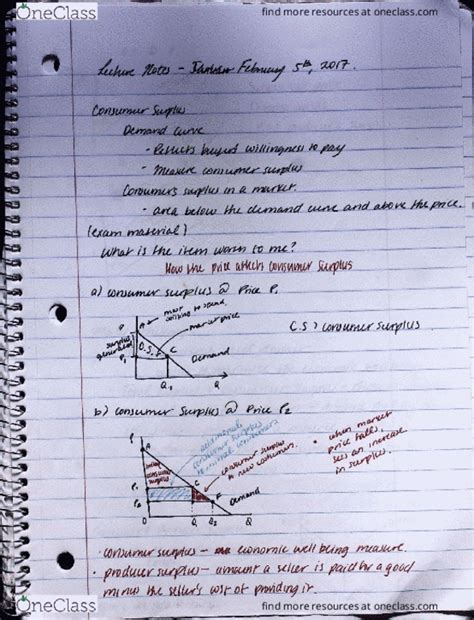 OneClass
find more resources at oneclass.com
Lecture Notes - January February 5th, 2017.
Consumer Surplus
Demand Curve
- Reflects buyers willingness to pay
- Measure consumer surplus
Consumers surplus in a market.
- area below the demand curve and above the price.
(exam material)
What is the item worth to me?
How the price affects consumer surplus
a) consumer surplus @ Price P1
P
A
market price
surplus
P1
C.S.
C
Demand
Q1
Q
C.S > consumer surplus
b) consumer surplus @ Price P2
P
A
additional
consumer surplus
consumer surplus
to new consumers.
• when market
price falls,
sees an increase
in surplus.
P1
P2
C
F
Demand
0
Q
Q2
Q
• consumer surplus - economic well being measure.
• producer surplus - amount a seller is paid for a good
minus the seller's cost of providing it.
OneClass
find more resources at oneclass.com